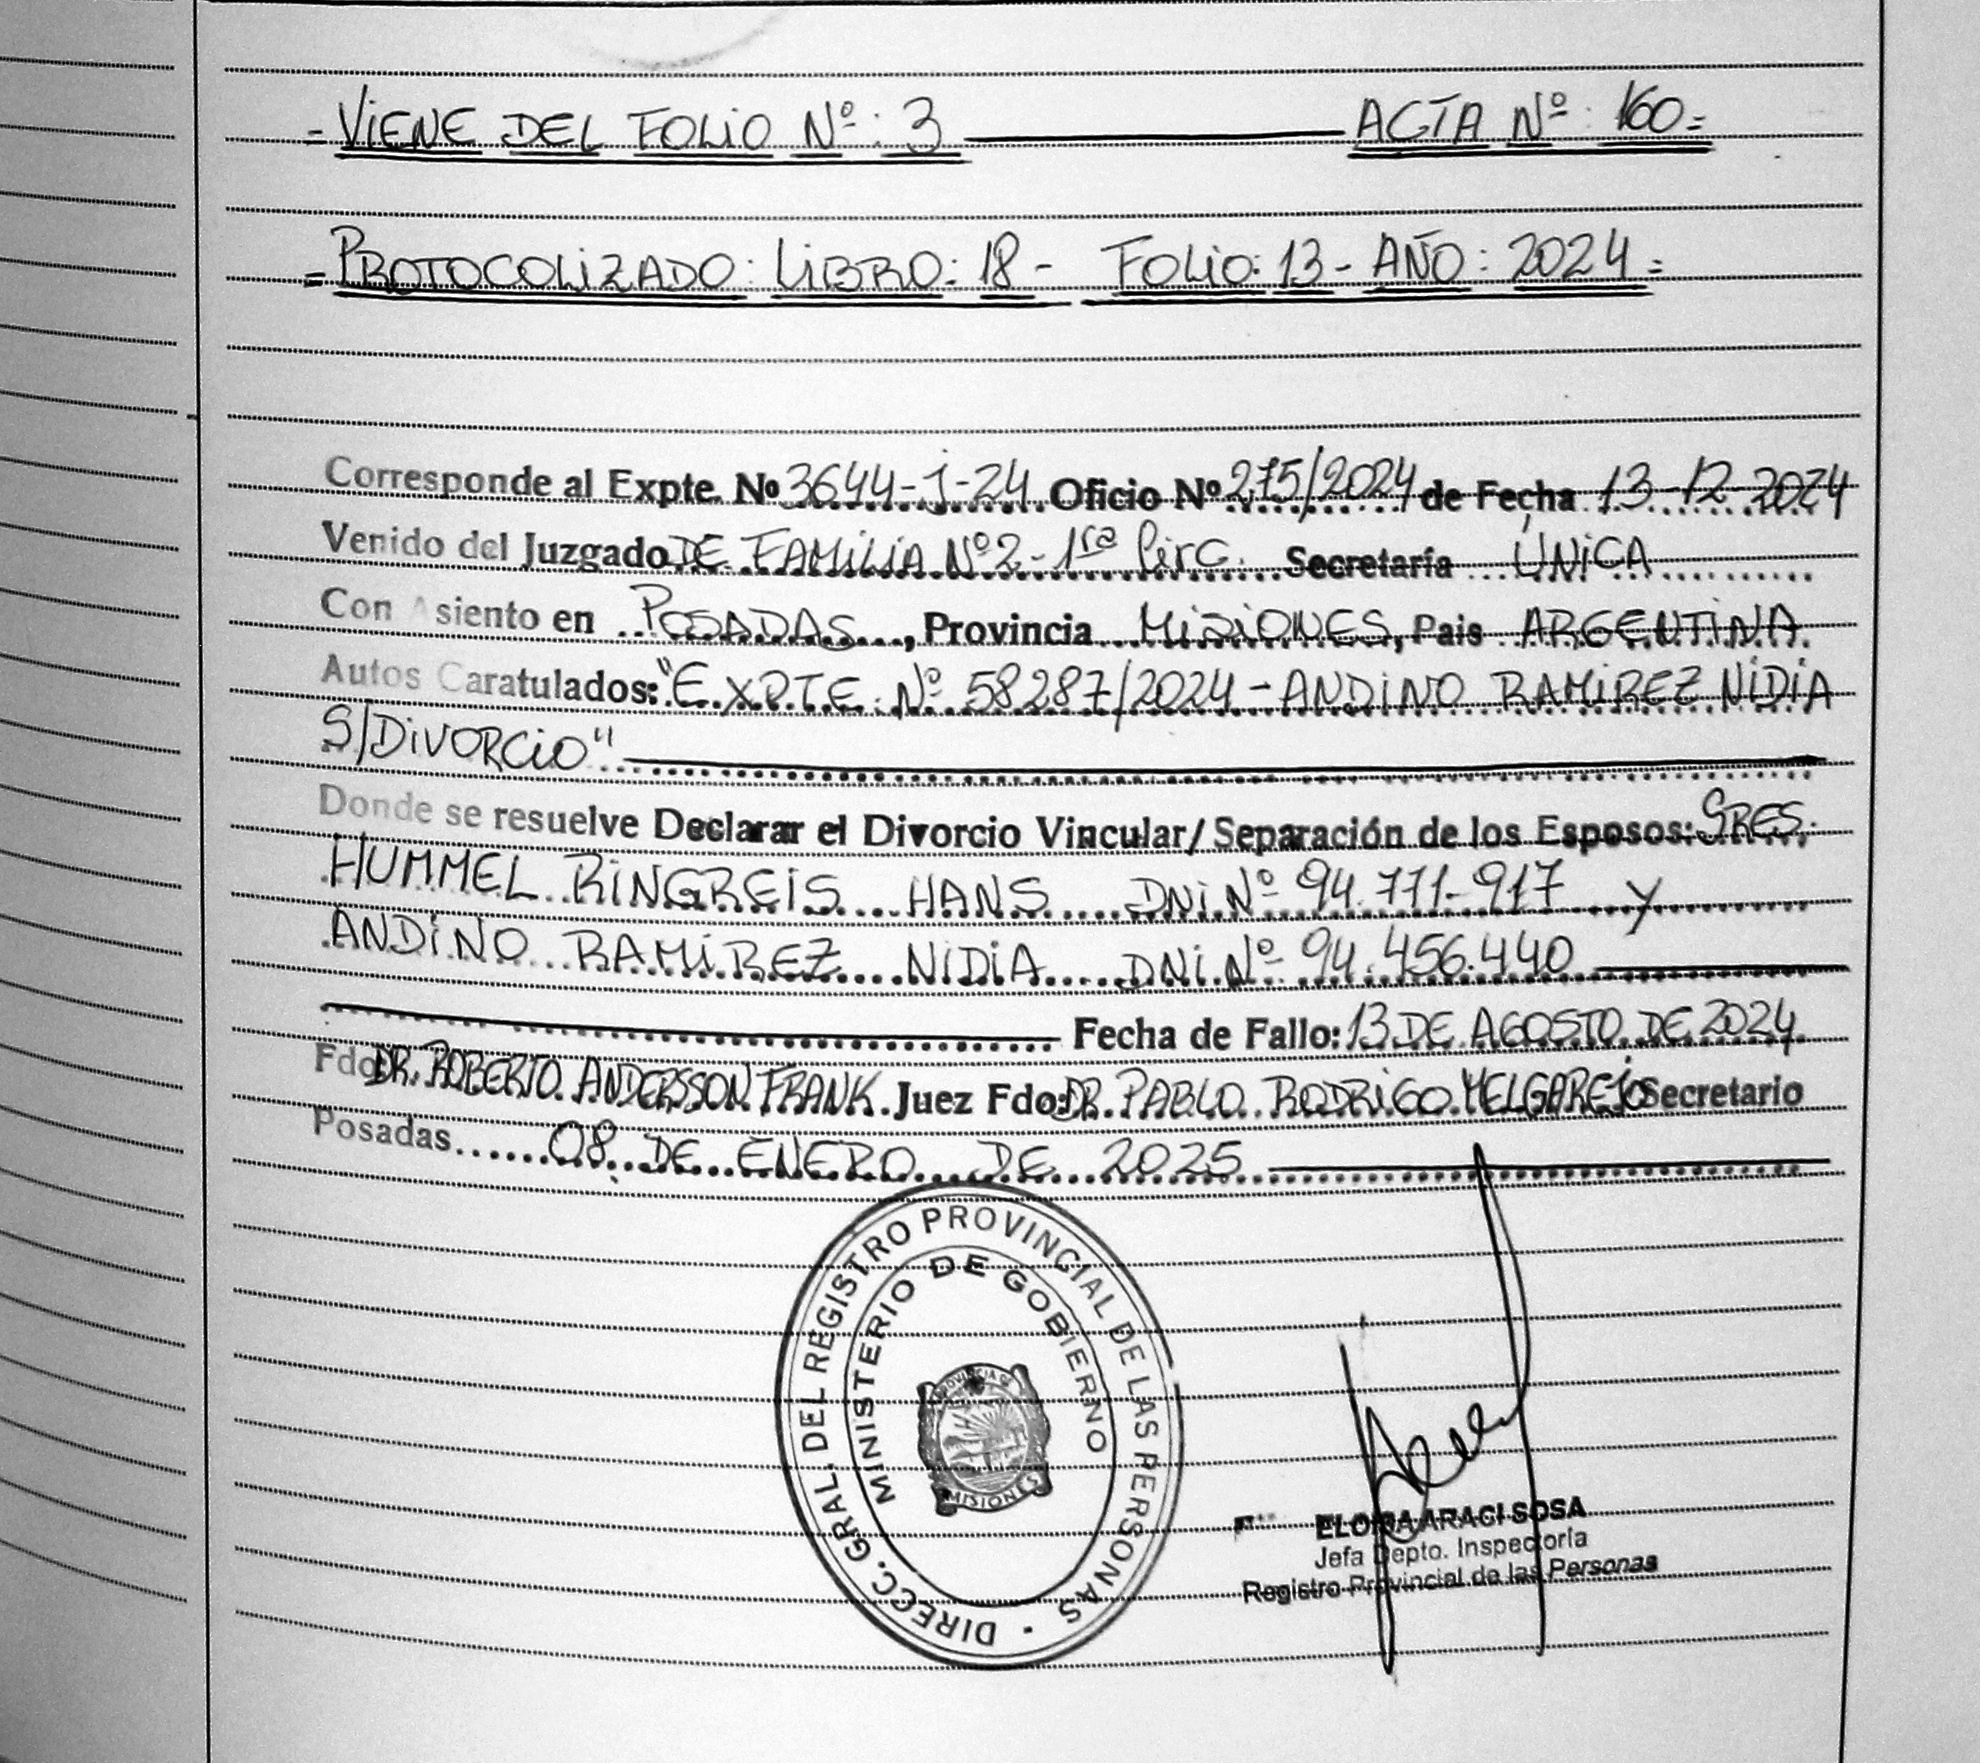 = VIENE DEL FOLIO Nº: 3 ACTA Nº: 160=
= PROTOCOLIZADO: LIBRO: 18 - FOLIO: 13 - AÑO: 2024 =
Corresponde al Expte. Nº 3644-J-24 Oficio Nº 275/2024 de Fecha 13-12-2024
Venido del Juzgado DE FAMILIA Nº2 - 1ra Circ. Secretaría ÚNICA
Con Asiento en POSADAS, Provincia MISIONES, Pais ARGENTINA.
Autos Caratulados: "EXPTE. Nº 58287/2024 - ANDINO RAMIREZ NIDIA
S/DIVORCIO"
Donde se resuelve Declarar el Divorcio Vincular/ Separación de los Esposos: SRES.
HUMMEL RINGREIS HANS DNI Nº 94.771.917 Y
ANDINO RAMIREZ NIDIA DNI Nº 94.456.440
Fecha de Fallo: 13 DE AGOSTO DE 2024.
Fdo DR. ROBERTO ANDERSSON FRANK. Juez Fdo: DR. PABLO RODRIGO MELGAREJO Secretario
Posadas 08 DE ENERO DE 2025
DIRECC. GRAL. DEL REGISTRO PROVINCIAL DE LAS PERSONAS
MINISTERIO DE GOBIERNO
PROVINCIA DE
MISIONES
ELOISA ARACI SOSA
Jefa Depto. Inspectoría
Registro Provincial de las Personas